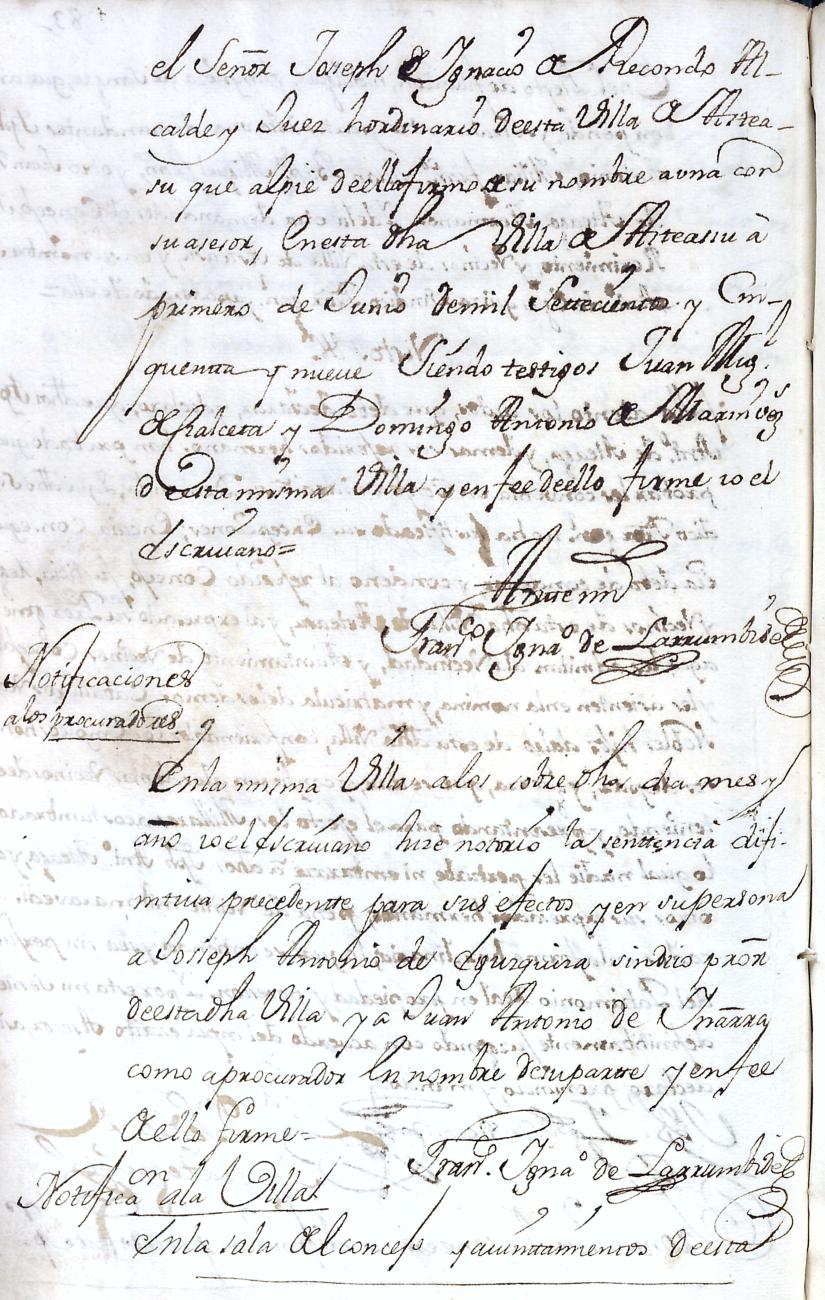 el Señor Joseph de Ygnacio de Recondo Al-
calde y Juez hordinario de esta Villa de Astea-
su que al pie de ella firmo de su nombre a una con
su asesor, En esta dha Villa de Asteassu à
primero de Junio de mil Settecientos y Cin-
quenta y nueve Siendo testigos Juan Migl.
de Chalceta y Domingo Antonio de Marin vos
de esta misma Villa y en fee de ello firme io el
Escriuano=
Ante mi
Franco. Ygnao. de Larrumbide
Notificaciones
a los procuradores.
En la misma Villa a los sobre dhos dia mes y
año io el Escriuano hize notorio la senttencia difi-
nitiva precedentte para sus efectos y en su persona
a Joseph Antonio de Eguzquiza sindico pror
de esta dha Villa y a Juan Antonio de Ynarra
como a procurador En nombre de su partte y en fee
de ello firme=
Franco. Ygnao. de Larrumbide
Notificaon a la Villa
En la sala del concejo y aiuntamientos de esta